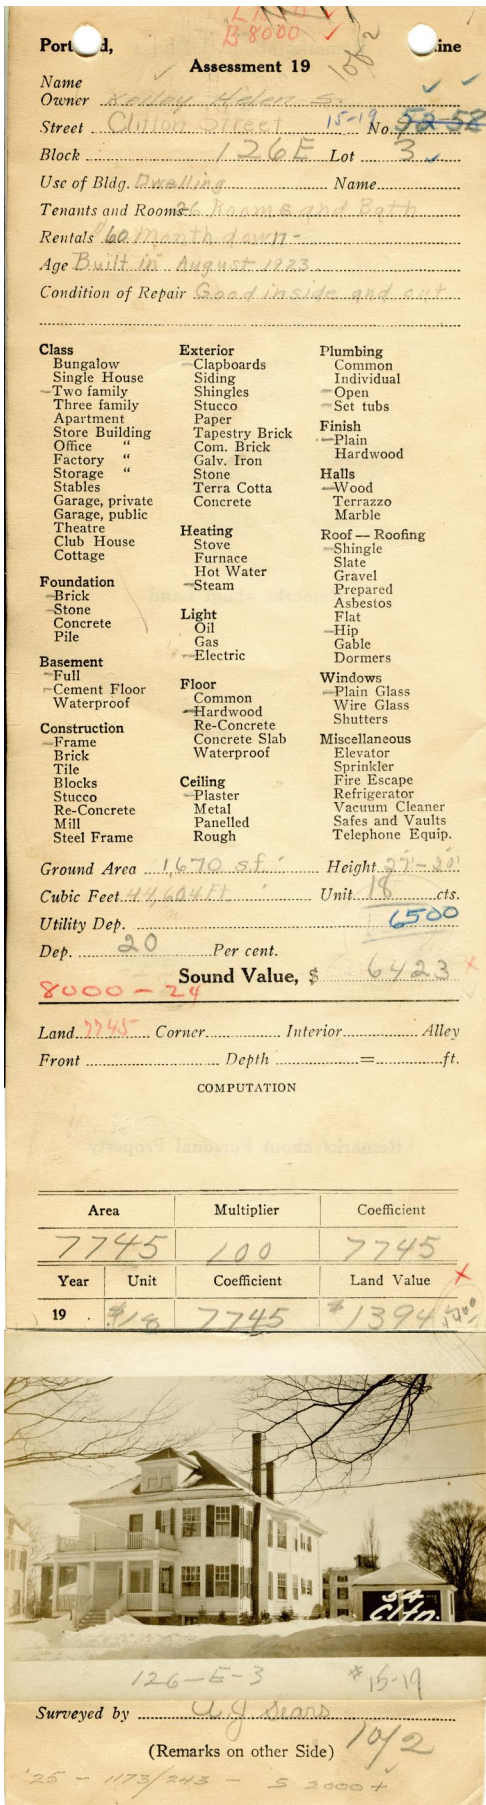 B 8000 ✓
Portland, Maine
Assessment 19
1 of 2
Name
Owner Kelley Helen S.
Street Clifton Street 15-19 No. 52-58
Block 126E Lot 3
Use of Bldg. Dwelling Name
Tenants and Rooms 26 Rooms and Bath
Rentals $60 Month down -
Age Built in August 1923
Condition of Repair Good inside and out
Class
Bungalow
Single House
Two family
Three family
Apartment
Store Building
Office "
Factory "
Storage "
Stables
Garage, private
Garage, public
Theatre
Club House
Cottage
Foundation
Brick
Stone
Concrete
Pile
Basement
Full
Cement Floor
Waterproof
Construction
Frame
Brick
Tile
Blocks
Stucco
Re-Concrete
Mill
Steel Frame
Exterior
Clapboards
Siding
Shingles
Stucco
Paper
Tapestry Brick
Com. Brick
Galv. Iron
Stone
Terra Cotta
Concrete
Heating
Stove
Furnace
Hot Water
Steam
Light
Oil
Gas
Electric
Floor
Common
Hardwood
Re-Concrete
Concrete Slab
Waterproof
Ceiling
Plaster
Metal
Panelled
Rough
Plumbing
Common
Individual
Open
Set tubs
Finish
Plain
Hardwood
Halls
Wood
Terrazzo
Marble
Roof — Roofing
Shingle
Slate
Gravel
Prepared
Asbestos
Flat
Hip
Gable
Dormers
Windows
Plain Glass
Wire Glass
Shutters
Miscellaneous
Elevator
Sprinkler
Fire Escape
Refrigerator
Vacuum Cleaner
Safes and Vaults
Telephone Equip.
Ground Area 1,670 sf. Height 27'-20'
Cubic Feet 44,604 ft Unit 18 cts.
Utility Dep. 6500
Dep. 20 Per cent.
Sound Value, $ 6423 x
8000 - 24
Land 7745 Corner Interior Alley
Front Depth = ft.
COMPUTATION
Remarks about Personal Property
Area Multiplier Coefficient
7745 100 7745
Year Unit Coefficient Land Value x
19 $18 7745 $1394 1400
54
Clif.
126-E-3 #15-19
Surveyed by A J Sears
(Remarks on other Side) 10/2
'25 - 1173/243 - S 2000 +